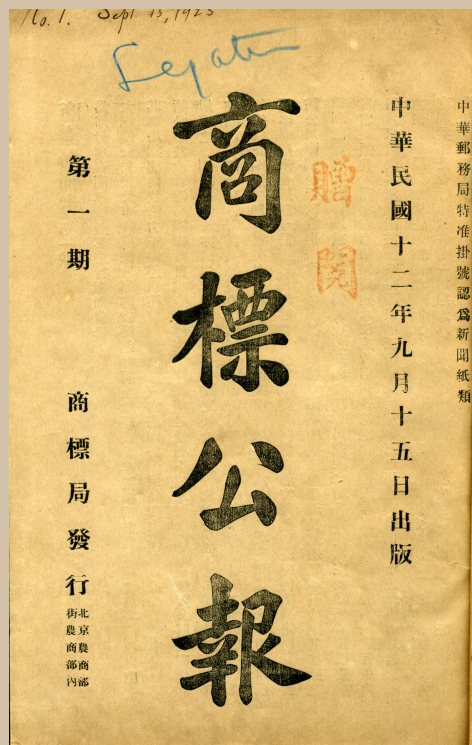 No. 1. Sept 15, 1923
中華郵務局特准掛號認爲新聞紙類
中華民國十二年九月十五日出版
贈閱
商標公報
第一期
商標局發行
北京農商部
街農商部內